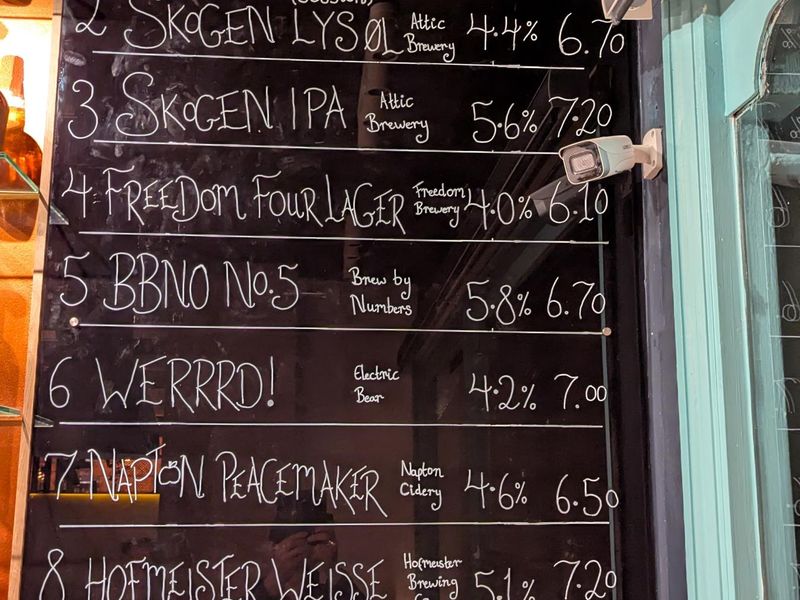 (Session)
2 SKOGEN LYSØL Attic Brewery 4.4% 6.70
3 SKOGEN IPA Attic Brewery 5.6% 7.20
4 FREEDOM FOUR LAGER Freedom Brewery 4.0% 6.10
5 BBNO No.5 Brew by Numbers 5.8% 6.70
6 WERRRD! Electric Bear 4.2% 7.00
7 NAPTON PEACEMAKER Napton Cidery 4.6% 6.50
8 HOFMEISTER WEISSE Hofmeister Brewing 5.1% 7.20